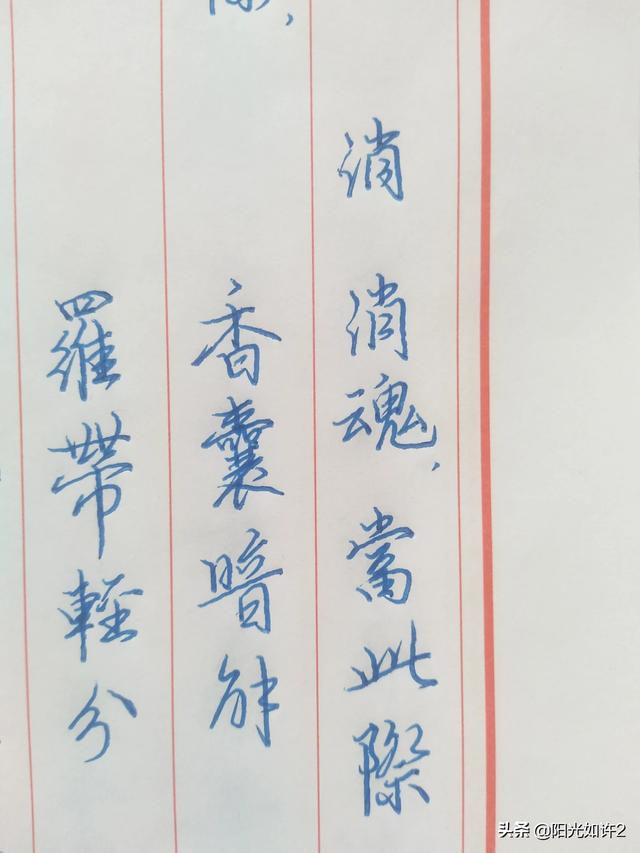 消
消魂,當此際
香囊暗解
羅帶輕分
际,
头条 @阳光如许2